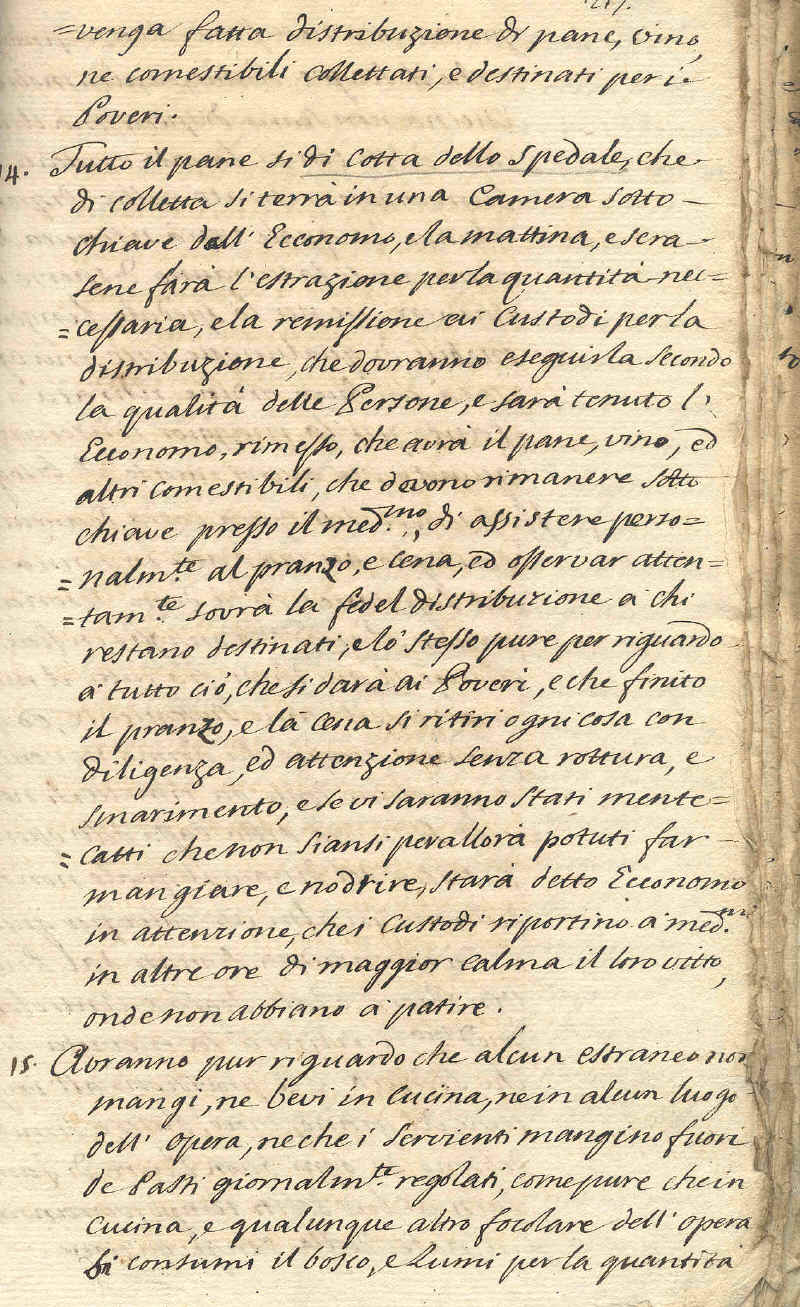 217.
=venga fatta distribuzione di pane, vino,
ne comestibili collettati, e destinati per i
Poveri.
14. Tutto il pane si di Cotta dello Spedale, che
di colletta si terrà in una Camera sotto
chiave dall' Ecconomo, e la mattina, e sera
se ne farà l'estrazione per la quantità nec=
=cessaria, e la remissione ai Custodi per la
distribuzione, che dovranno eseguirla secondo
la qualità delle Persone, e sarà tenuto l'
Ecconomo, rimesso, che avrà il pane, vino, ed
altri comestibili, che devono rimanere sotto
chiave presso il med.mo, di assistere perso=
=nalm.te al pranzo, e Cena, ed osservar atten=
=tam.te sovrà la fedel distribuzione a chi
restano destinati, e lo stesso pure per riguardo
a tutto ciò, che si darà ai Poveri, e che finito
il pranzo, e la cena si ritiri ogni cosa con
diligenza, ed attenzione senza rottura, e
smarimento, e se vi saranno stati mente=
=catti che non siansi per allora potuti far
mangiare, e nodrire, starà detto Ecconomo
in attenzione, che i Custodi riportino a med.mi
in altre ore di maggior calma il loro vitto,
onde non abbiano a patire.
15. Avranno pur riguardo che alcun estraneo non
mangi, ne bevi in Cucina, ne in alcun luogo
dell' opera, ne che i servienti mangino fuori
de Pasti giornalm.te regolati, come pure che in
Cucina, e qualunque altro focolare dell' opera
si consumi il bosco, e Lumi per la quantità